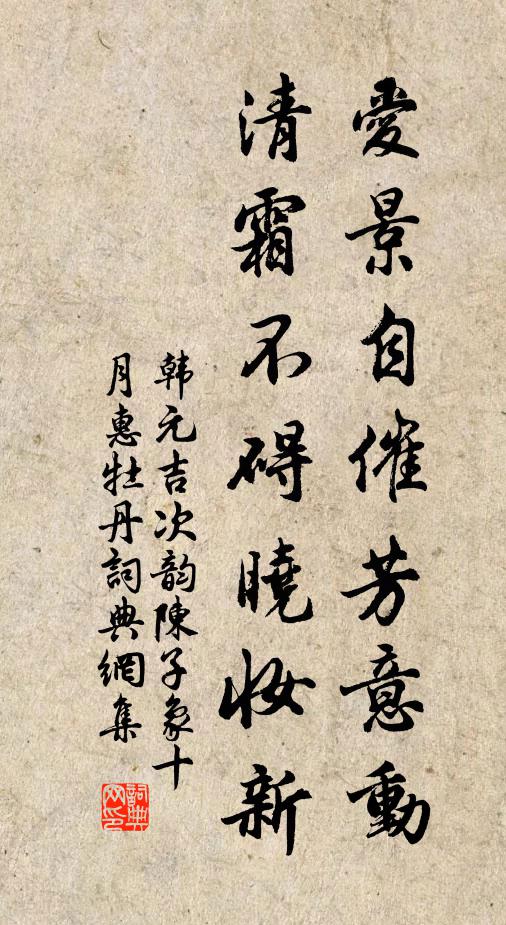 愛景自催芳意動
清霜不碍曉妝新
韩元吉次韵陳子象十
月惠牡丹詞典網集
詞典
网印